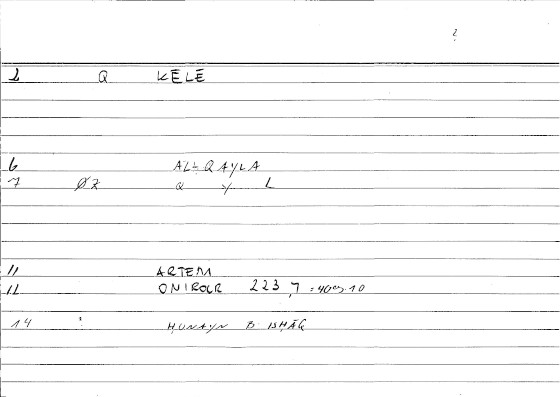 ?
1 Q KĒLĒ
6 AL-QAYLA
7 ØZ Q Y L
11 ARTEM
12 ONIROCR 223,7 = 409,10
14 : ḤUNAYN B. ISḤĀQ